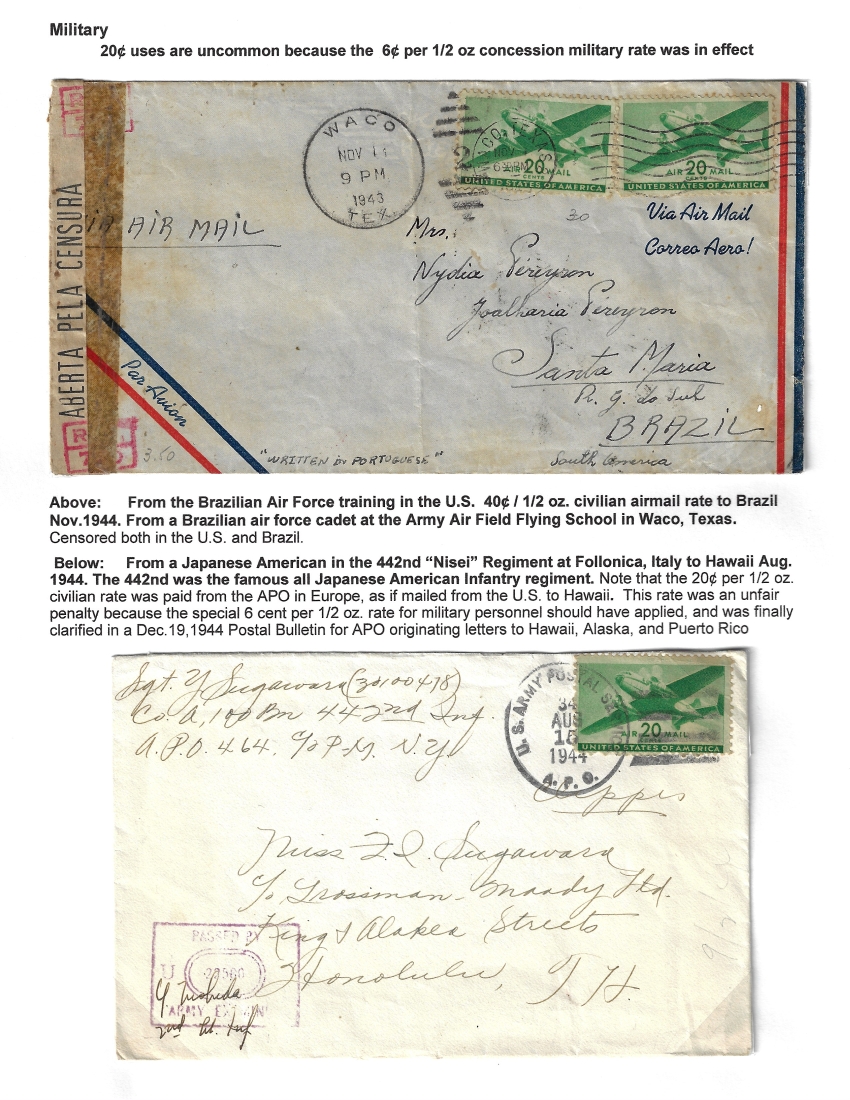 Military
20¢ uses are uncommon because the 6¢ per 1/2 oz concession military rate was in effect
ABERTA PELA CENSURA
AIR MAIL
WACO
NOV 11
9 PM
1943
TEX.
AIR 20 MAIL
CENTS
UNITED STATES OF AMERICA
AIR 20 MAIL
CENTS
UNITED STATES OF AMERICA
30
Via Air Mail
Correo Aero!
Par Avion
Mrs.
Nydia Pereyron
Joalharia Pereyron
Santa Maria
R. G. do Sul
BRAZIL
South America
3.50
"WRITTEN in PORTUGUESE"
Above: From the Brazilian Air Force training in the U.S. 40¢ / 1/2 oz. civilian airmail rate to Brazil
Nov.1944. From a Brazilian air force cadet at the Army Air Field Flying School in Waco, Texas.
Censored both in the U.S. and Brazil.
Below: From a Japanese American in the 442nd “Nisei” Regiment at Follonica, Italy to Hawaii Aug.
1944. The 442nd was the famous all Japanese American Infantry regiment. Note that the 20¢ per 1/2 oz.
civilian rate was paid from the APO in Europe, as if mailed from the U.S. to Hawaii. This rate was an unfair
penalty because the special 6 cent per 1/2 oz. rate for military personnel should have applied, and was finally
clarified in a Dec.19,1944 Postal Bulletin for APO originating letters to Hawaii, Alaska, and Puerto Rico
Sgt. Y. Sugawara (30100478)
Co. A, 100 Bn 442nd Inf.
A.P.O. 464, c/o P.M. N.Y.
U.S. ARMY POSTAL
AUG
15
1944
A.P.O.
AIR 20 MAIL
UNITED STATES OF AMERICA
Miss F. I. Sugawara
c/o Grossman-Moody Ltd.
King & Alakea Streets
Honolulu, T. H.
PASSED BY
U
ARMY EXAMINER
2nd Lt. Inf